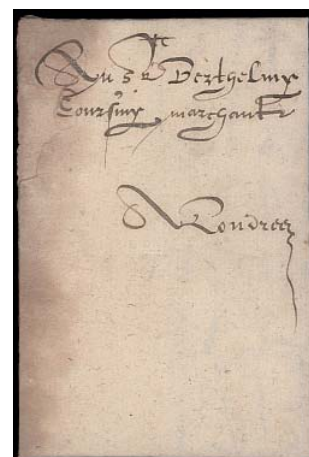 Au Sr Berthelmy
Coursiny marchant
A Londres